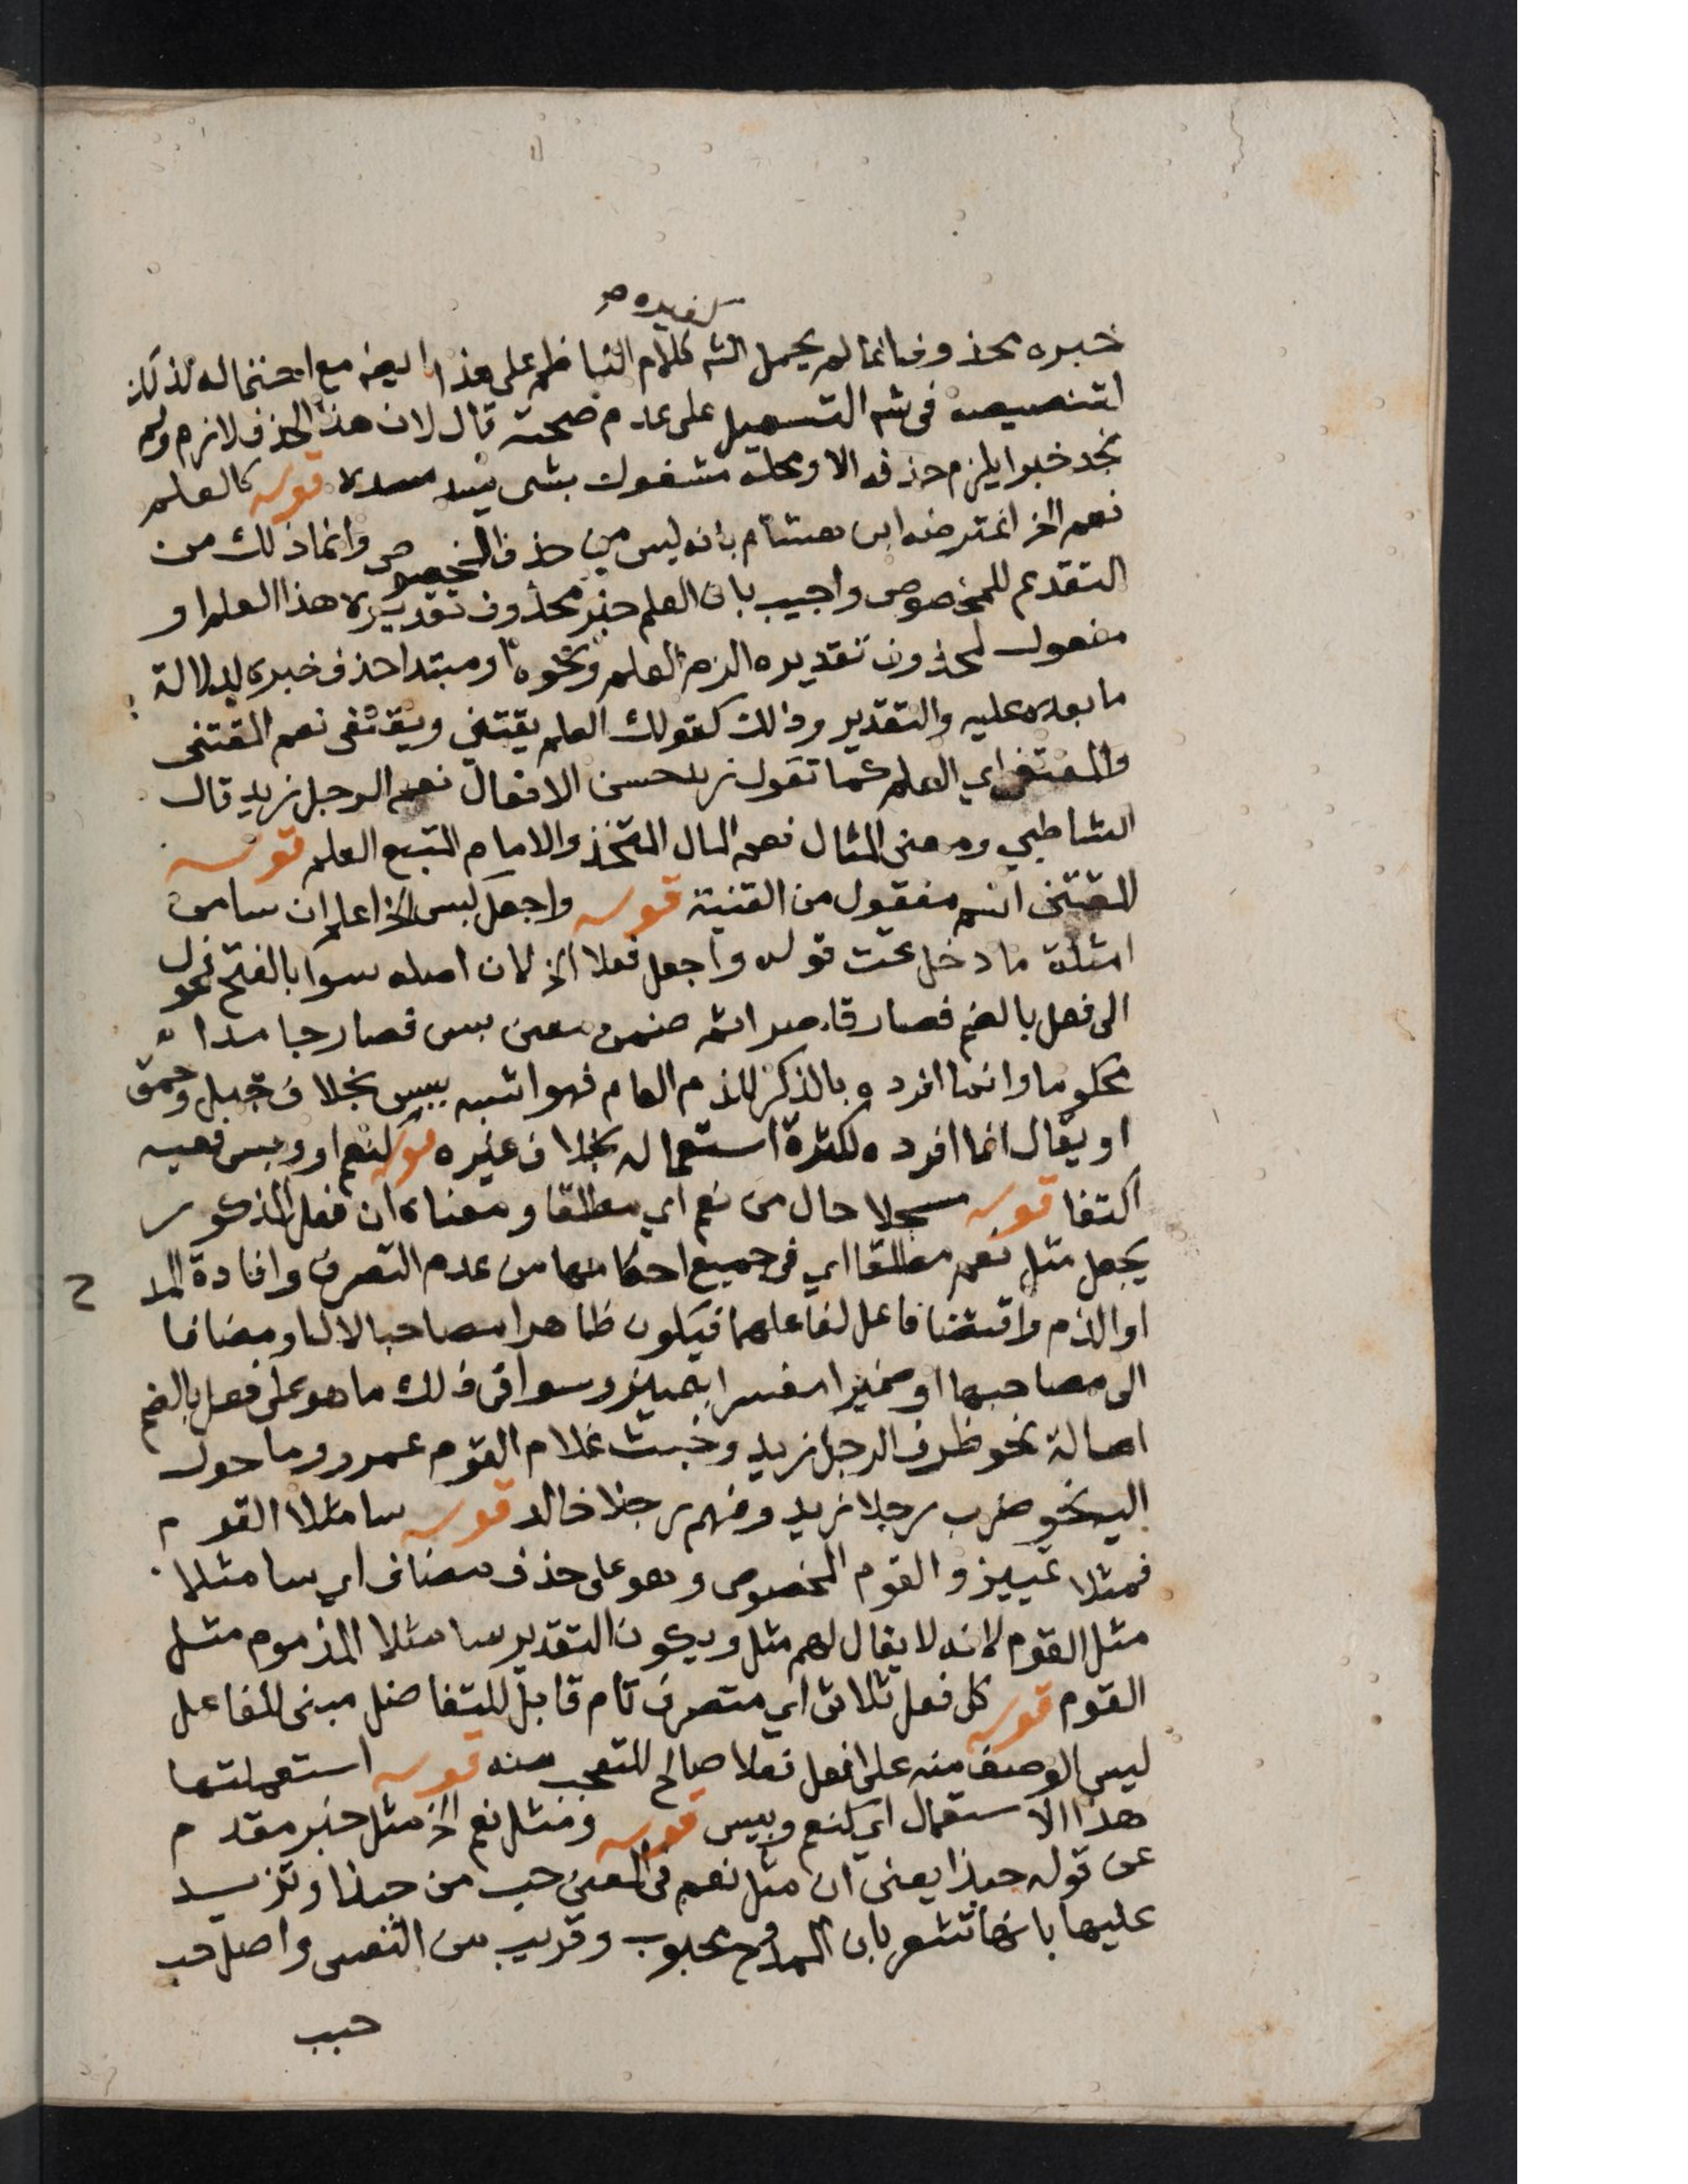 خبره محذوف انما لم يحمل الشه كلام الناظم على هذا ايضه مع احتماله لذلك
لتنصيصه في شه التسهيل على عدم صحته قال لان هذا الحذف لازم ولم
نجد خبرا يلزم حذفه الا ومحله مشغول بشى يسد مسده قوله كالعلم
نعم الخ اعترضه ابن هشام بانه ليس من حذف المخصوص وانما ذلك من
التقديم للمخصوص واجيب بان العلم خبر محذوف تقديره هذا العلم او
مفعول لمحذوف تقديره الزم العلم ونحوه او مبتدا حذف خبره لدلالة
ما بعده عليه والتقدير وذلك كقولك العلم يقتنى ويقتفى نعم المقتنى
والمقتفى اي العلم كما تقول زيد حسن الافعال نعم الرجل زيد قال
الشاطبي ومعنى المثال نعم المال المتخذ والامام المتبع العلم قوله
المقتنى اسم مفعول من القنية قوله واجعل كبيس الخ اعلم ان سا من
امثلة ما دخل تحت قوله واجعل فعلا الخ لان اصله سوا بالفتح فحول
الى فعل بالضم فصار قاصرا ثم ضمن معنى بيس فصار جامدا
محكوما وانما افرده بالذكر للذم العام فهو اشبه ببيس بخلاف جهل وحمق
او يقال انما افرده لكثرة استعماله بخلاف غيره قوله كنعم او وبيس ففيه
اكتفا قوله مسجلا حال من نعم اي مطلقا ومعناه ان فعل المذكور
يجعل مثل نعم مطلقا اي في جميع احكامها من عدم التصرف وافادة المد
او الذم واقتضا فاعل كفاعلهما فيكون ظاهرا مصاحبا لال او مضافا
الى مصاحبها او ضميرا مفسرا بتمييز وسوا في ذلك ما هو على فعل بالضم
اصالة نحو ظرف الرجل زيد وخبث غلام القوم عمرو وما حول
اليه نحو ضرب رجلا زيد وفهم رجلا خالد قوله سا مثلا القوم
فمثلا تمييز والقوم المخصوص وهو على حذف مضاف اي سا مثلا
مثل القوم لانه لا يقال لهم مثل ويكون التقدير سا مثلا المذموم مثل
القوم قوله كل فعل ثلاثى اي متصرف تام قابل للتفاضل مبنى للفاعل
ليس الوصف منه على افعل فعلا صالح للتعجب منه قوله استعملتها
هذا الاستعمال اي كنعم وبيس قوله ومثل نعم الخ مثل خبر مقدم
عن قوله حبذا يعنى ان مثل نعم فى المعنى حب من حبذا وتزيد
عليها بانها تشعر بان الممدوح محبوب وقريب من النفس واصل حب
حبب